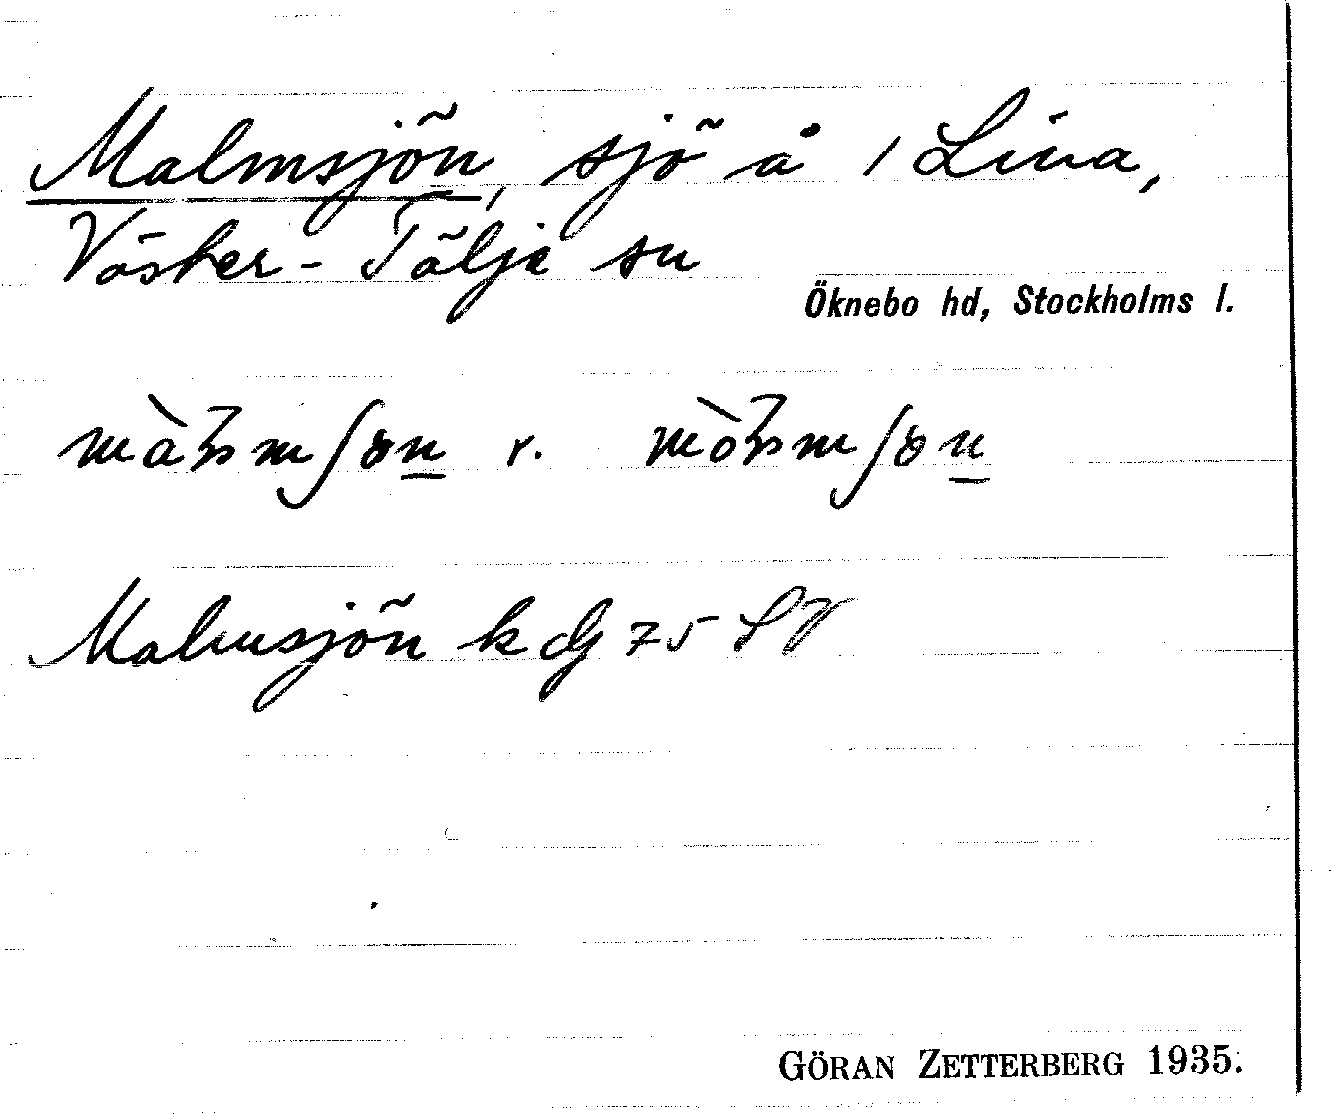 Malmsjön, sjö å 1 Lina,
Väster-Tälje sn
Öknebo hd, Stockholms l.
r.
Malmsjön k dg 75 SV
GÖRAN ZETTERBERG 1935.